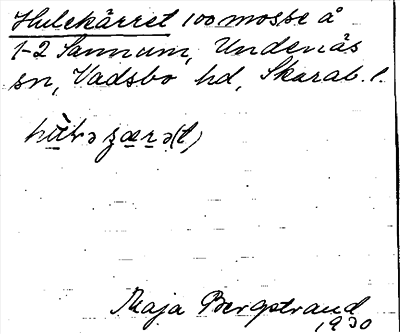 Hulekärret 100 mosse å
1-2 Sannum, Undenäs
sn, Vadsbo hd, Skarab. l.
Maja Bergstrand
1930